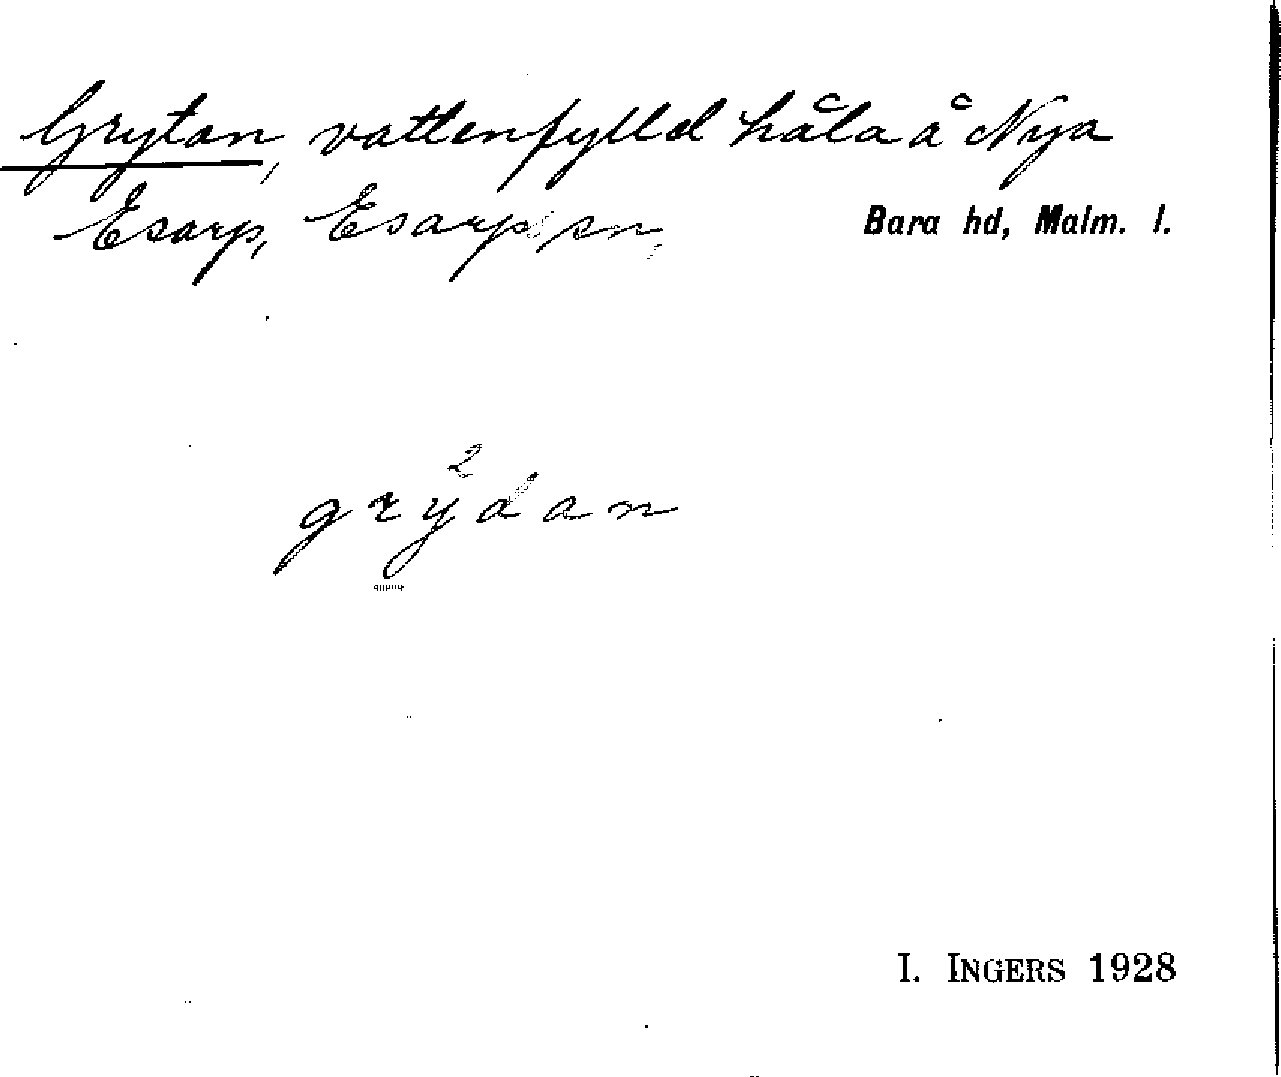 Grytan, vattenfylld håla å Nya
Esarp, Esarps sn, Bara hd, Malm. l.
grÿ²dan
I. INGERS 1928